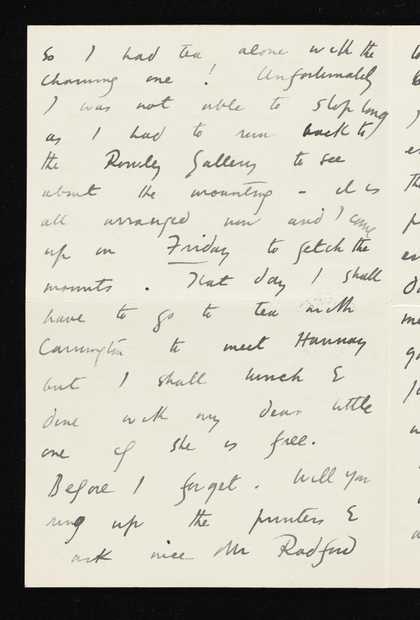 So I had tea alone with the
charming one! Unfortunately
I was not able to stop long
as I had to run back to
the Rowley Gallery to see
about the mounting - it is
all arranged now and I come
up on Friday to fetch the
mounts. That day I shall
have to go to tea with
Carrington to meet Hannay
but I shall lunch &
dine with my dear little
one if she is free.
Before I forget. Will you
ring up the printers &
ask nice Mr Radford